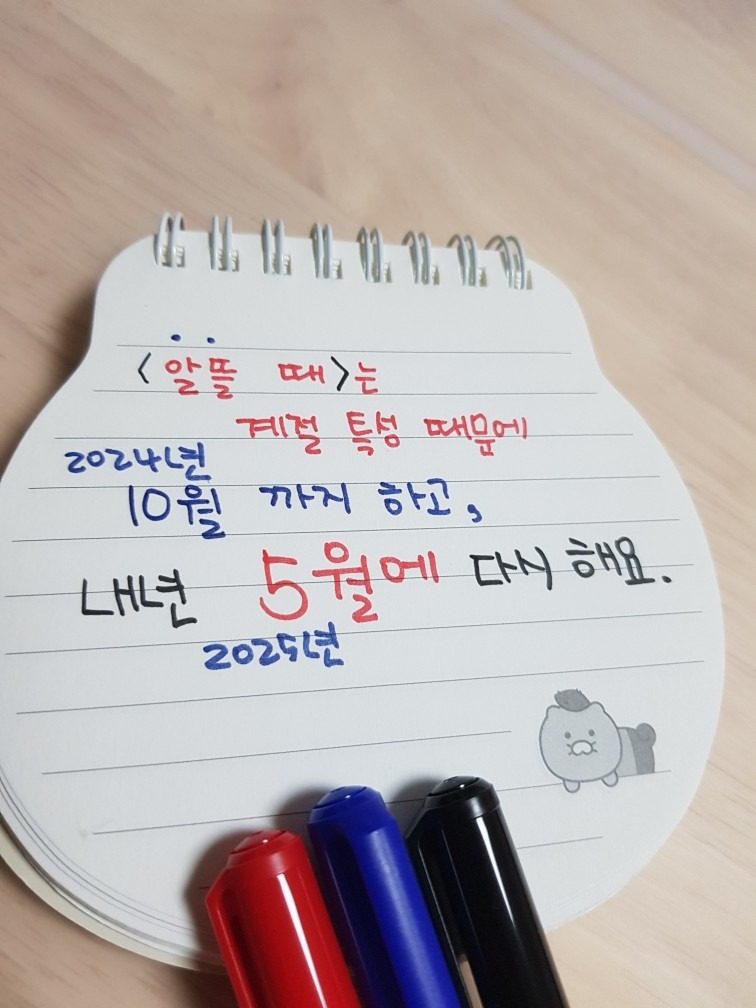 <알뜰 때>는
계절 특성 때문에
2024년
10월 까지 하고,
내년 5월에 다시 해요.
2025년